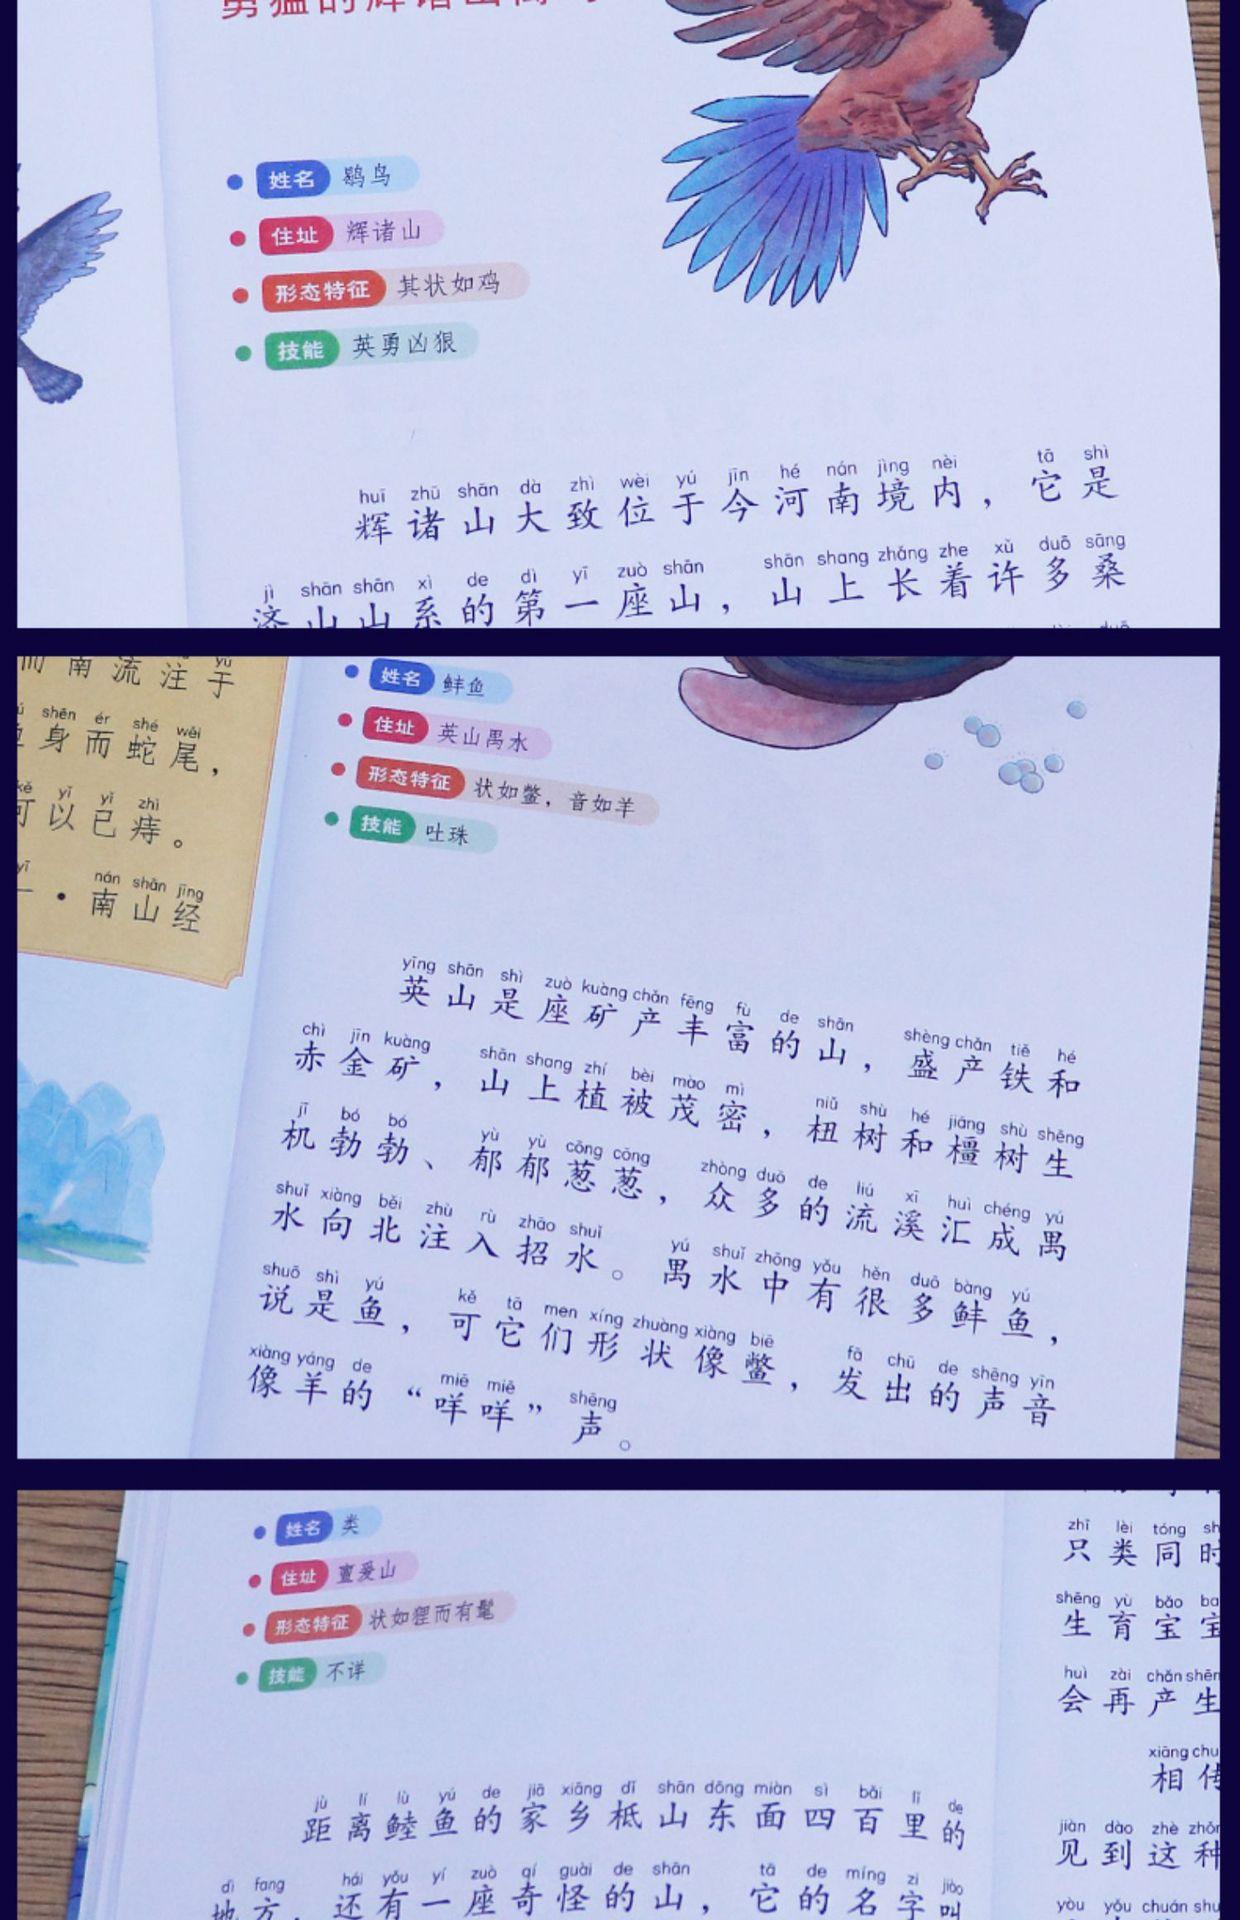 姓名 鹖鸟
住址 辉诸山
形态特征 其状如鸡
技能 英勇凶狠
huī zhū shān dà zhì wèi yú jīn hé nán jìng nèi tā shì
辉诸山大致位于今河南境内，它是
jì shān shān xì de dì yī zuò shān shān shang zhǎng zhe xǔ duō sāng
济山山系的第一座山，山上长着许多桑
而南流注于
shēn ér shé wěi
身而蛇尾，
kě yǐ yǐ zhì
可以已痔。
nán shān jīng
·南山经
姓名 鲜鱼
住址 英山禺水
形态特征 状如鳖，音如羊
技能 吐珠
yīng shān shì zuò kuàng chǎn fēng fù de shān shèng chǎn tiě hé
英山是座矿产丰富的山，盛产铁和
chì jīn kuàng shān shang zhí bèi mào mì niǔ shù hé jiāng shù shēng
赤金矿，山上植被茂密，杻树和橿树生
jī bó bó yù yù cōng cōng zhòng duō de liú xī huì chéng yú
机勃勃、郁郁葱葱，众多的流溪汇成禺
shuǐ xiàng běi zhù rù zhāo shuǐ yú shuǐ zhōng yǒu hěn duō bàng yú
水向北注入招水。禺水中有很多鲜鱼，
shuō shì yú kě tā men xíng zhuàng xiàng biē fā chū de shēng yīn
说是鱼，可它们形状像鳖，发出的声音
xiàng yáng de miē miē shēng
像羊的“咩咩”声。
姓名 类
住址 亶爰山
形态特征 状如狸而有髦
技能 不详
jù lí lù yú de jiā xiāng dǐ shān dōng miàn sì bǎi lǐ de
距离鯥鱼的家乡柢山东面四百里的
dì fang hái yǒu yí zuò qí guài de shān tā de míng zi jiào
地方，还有一座奇怪的山，它的名字叫
zhī lèi tóng
只类同时
shēng yù bǎo
生育宝宝
huì zài chǎn shēng
会再产生
xiāng
相传
jiàn dào zhè zhǒng
见到这种
yòu yǒu chuán